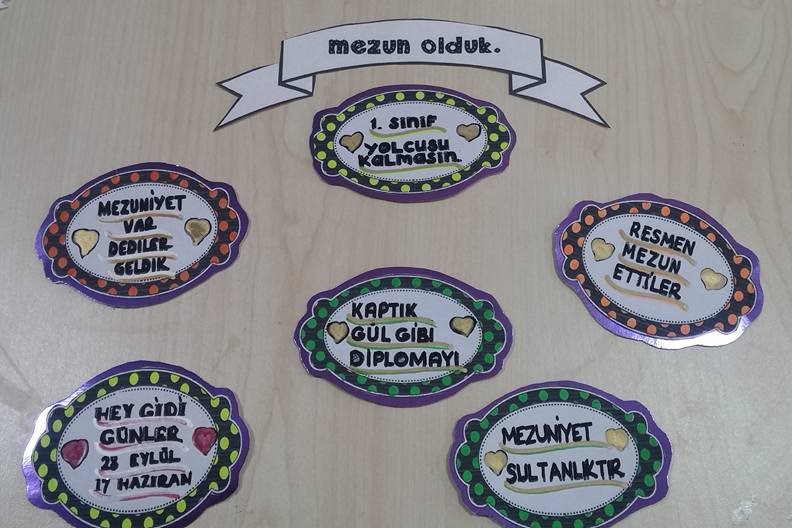 mezun olduk.
1. SINIF
YOLCUSU
KALMASIN.
MEZUNİYET
VAR
DEDİLER
GELDİK
RESMEN
MEZUN
ETTİLER
KAPTIK
GÜL GİBİ
DİPLOMAYI
HEY GİDİ
GÜNLER
28 EYLÜL
17 HAZİRAN
MEZUNİYET
SULTANLIKTIR